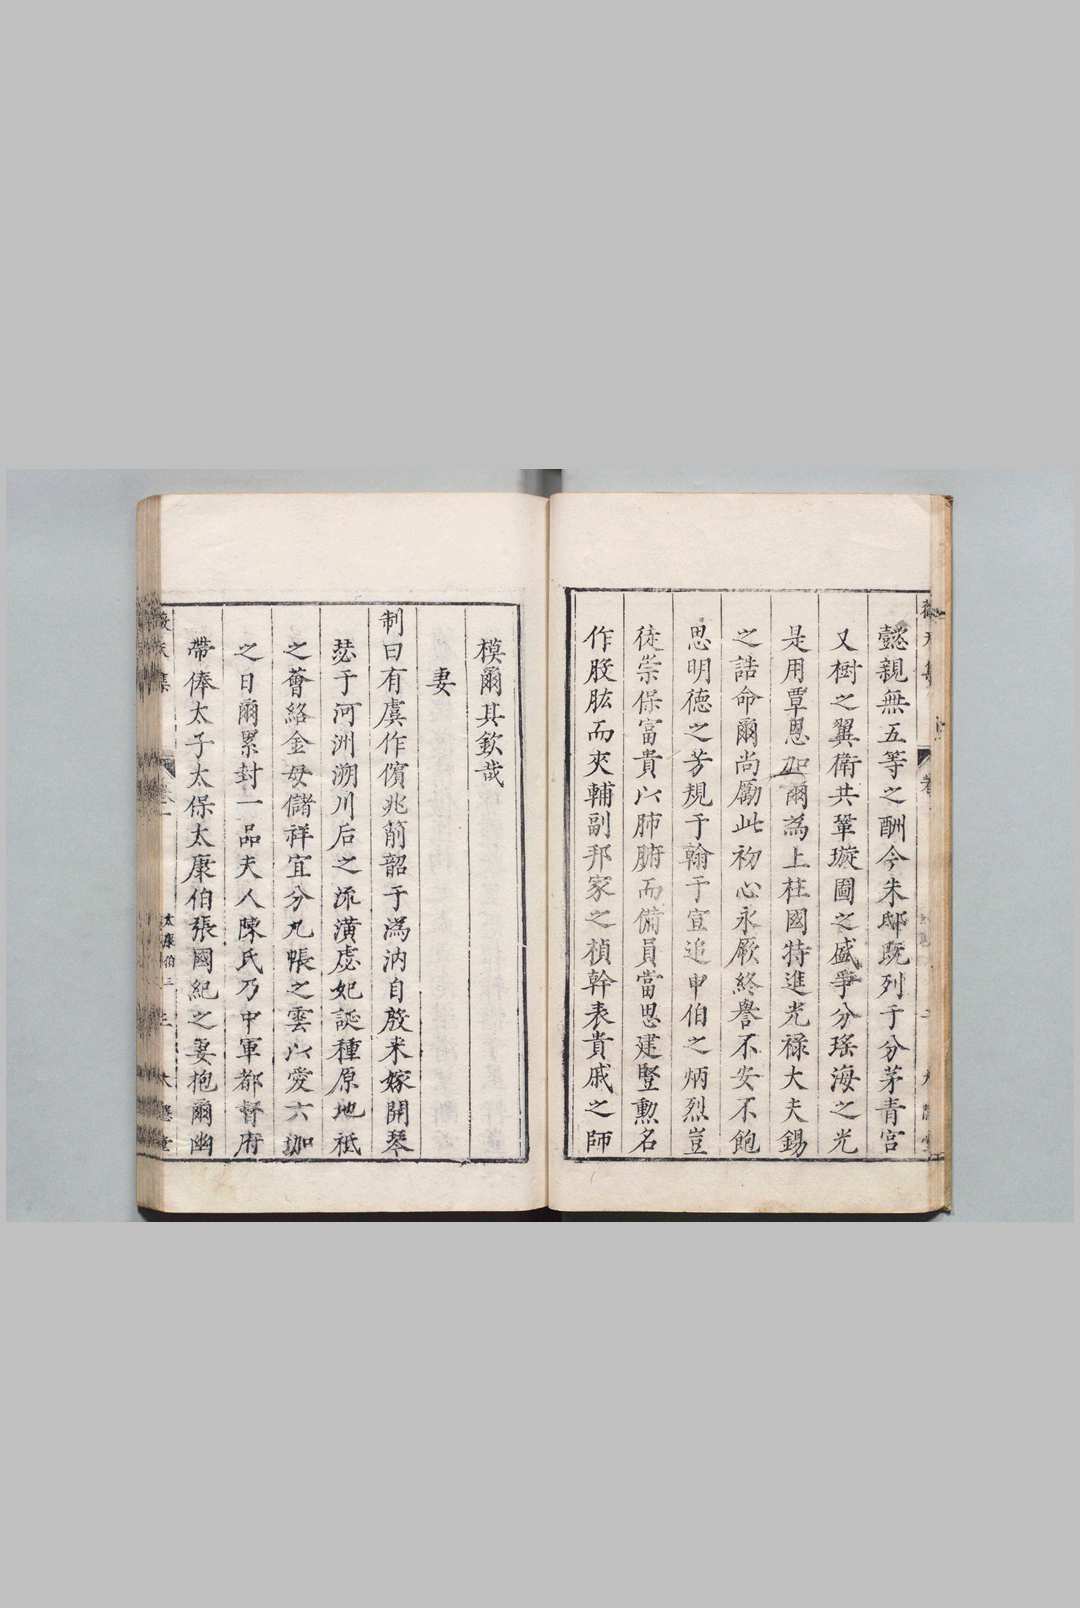 懿親無五等之酬今朱邸既列于分茅青宮
又樹之翼衛共鞏璇圖之盛爭分瑤海之光
是用覃恩加爾為上柱國特進光祿大夫錫
之誥命爾尚勵此初心永厥終譽不安不飽
思明德之芳規于翰于宣追申伯之炳烈豈
徒崇保富貴以肺腑而備員當思建豎勳名
作股肱而夾輔副邦家之禎幹表貴戚之師
模爾其欽哉
妻
制曰有虞作儐兆前韶于溈汭自殷來嫁開琴
瑟于河洲溯川后之流潢虙妃誕種原地祇
之薈絡金母儲祥宜分九帳之雲以愛六珈
之日爾累封一品夫人陳氏乃中軍都督府
帶俸太子太保太康伯張國紀之妻抱爾幽
太康伯三